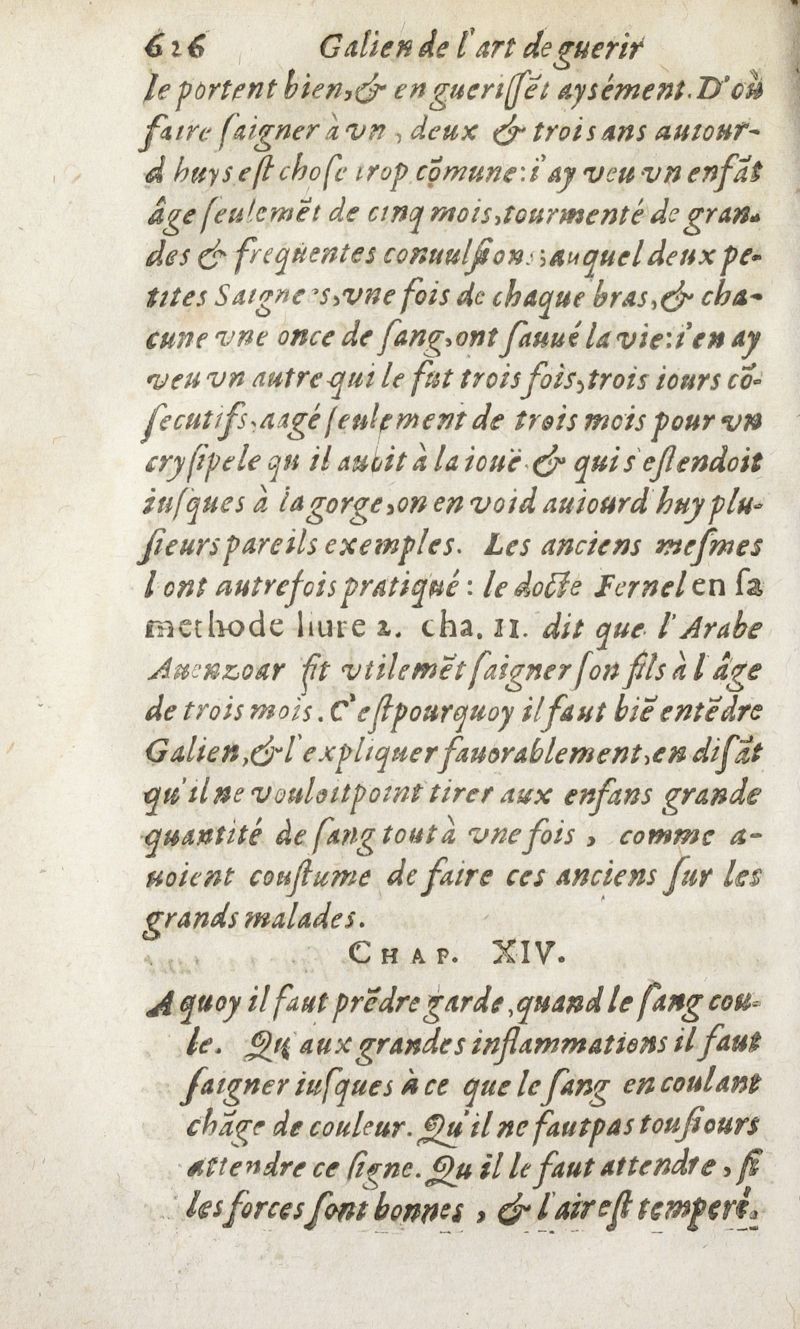 626 Galien de l'art de guerir
le portent bien, & en guerissẽt aysément. D'où
faire saigner à vn, deux & trois ans autour-
d huys est chose trop cõmune: i'ay veu vn enfãt
âge seulemẽt de cinq mois, tourmenté de gran-
des & freqüentes conuulsions; auquel deux pe-
tites Saignees, vne fois de chaque bras, & cha-
cune vne once de sang, ont sauué la vie: i'en ay
veu vn autre qui le fut trois fois, trois iours cõ-
secutifs, aagé seulement de trois mois pour vn
erysipele qu il auoit à la iouë & qui s'estendoit
iusques à la gorge, on en void auiourd huy plu-
sieurs pareils exemples. Les anciens mesmes
l ont autrefois pratiqué: le docte Fernel en sa
methode liure 2. cha. 11. dit que l'Arabe
Auenzoar fit vtilemẽt saigner son fils à l âge
de trois mois. C'est pourquoy il faut biẽ entẽdre
Galien, & l'expliquer fauorablement, en disãt
qu'il ne vouloit point tirer aux enfans grande
quantité de sang tout à vne fois, comme a-
uoient coustume de faire ces anciens sur les
grands malades.
CHAP. XIV.
A quoy il faut prẽdre garde, quand le sang cou-
le. Qu'aux grandes inflammations il faut
saigner iusques à ce que le sang en coulant
chãge de couleur. Qu'il ne faut pas tousiours
attendre ce signe. Qu il le faut attendre, si
les forces sont bonnes, & l'air est temperé.